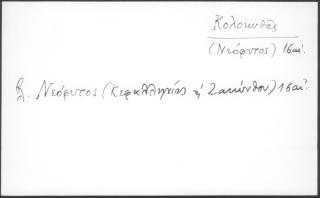 Κολοκυθᾶς
(Νεόφυτος) 16 αἰ.
βλ. Νεόφυτος (Κεφαλληνίας ἢ Ζακύνθου) 16 αἰ.